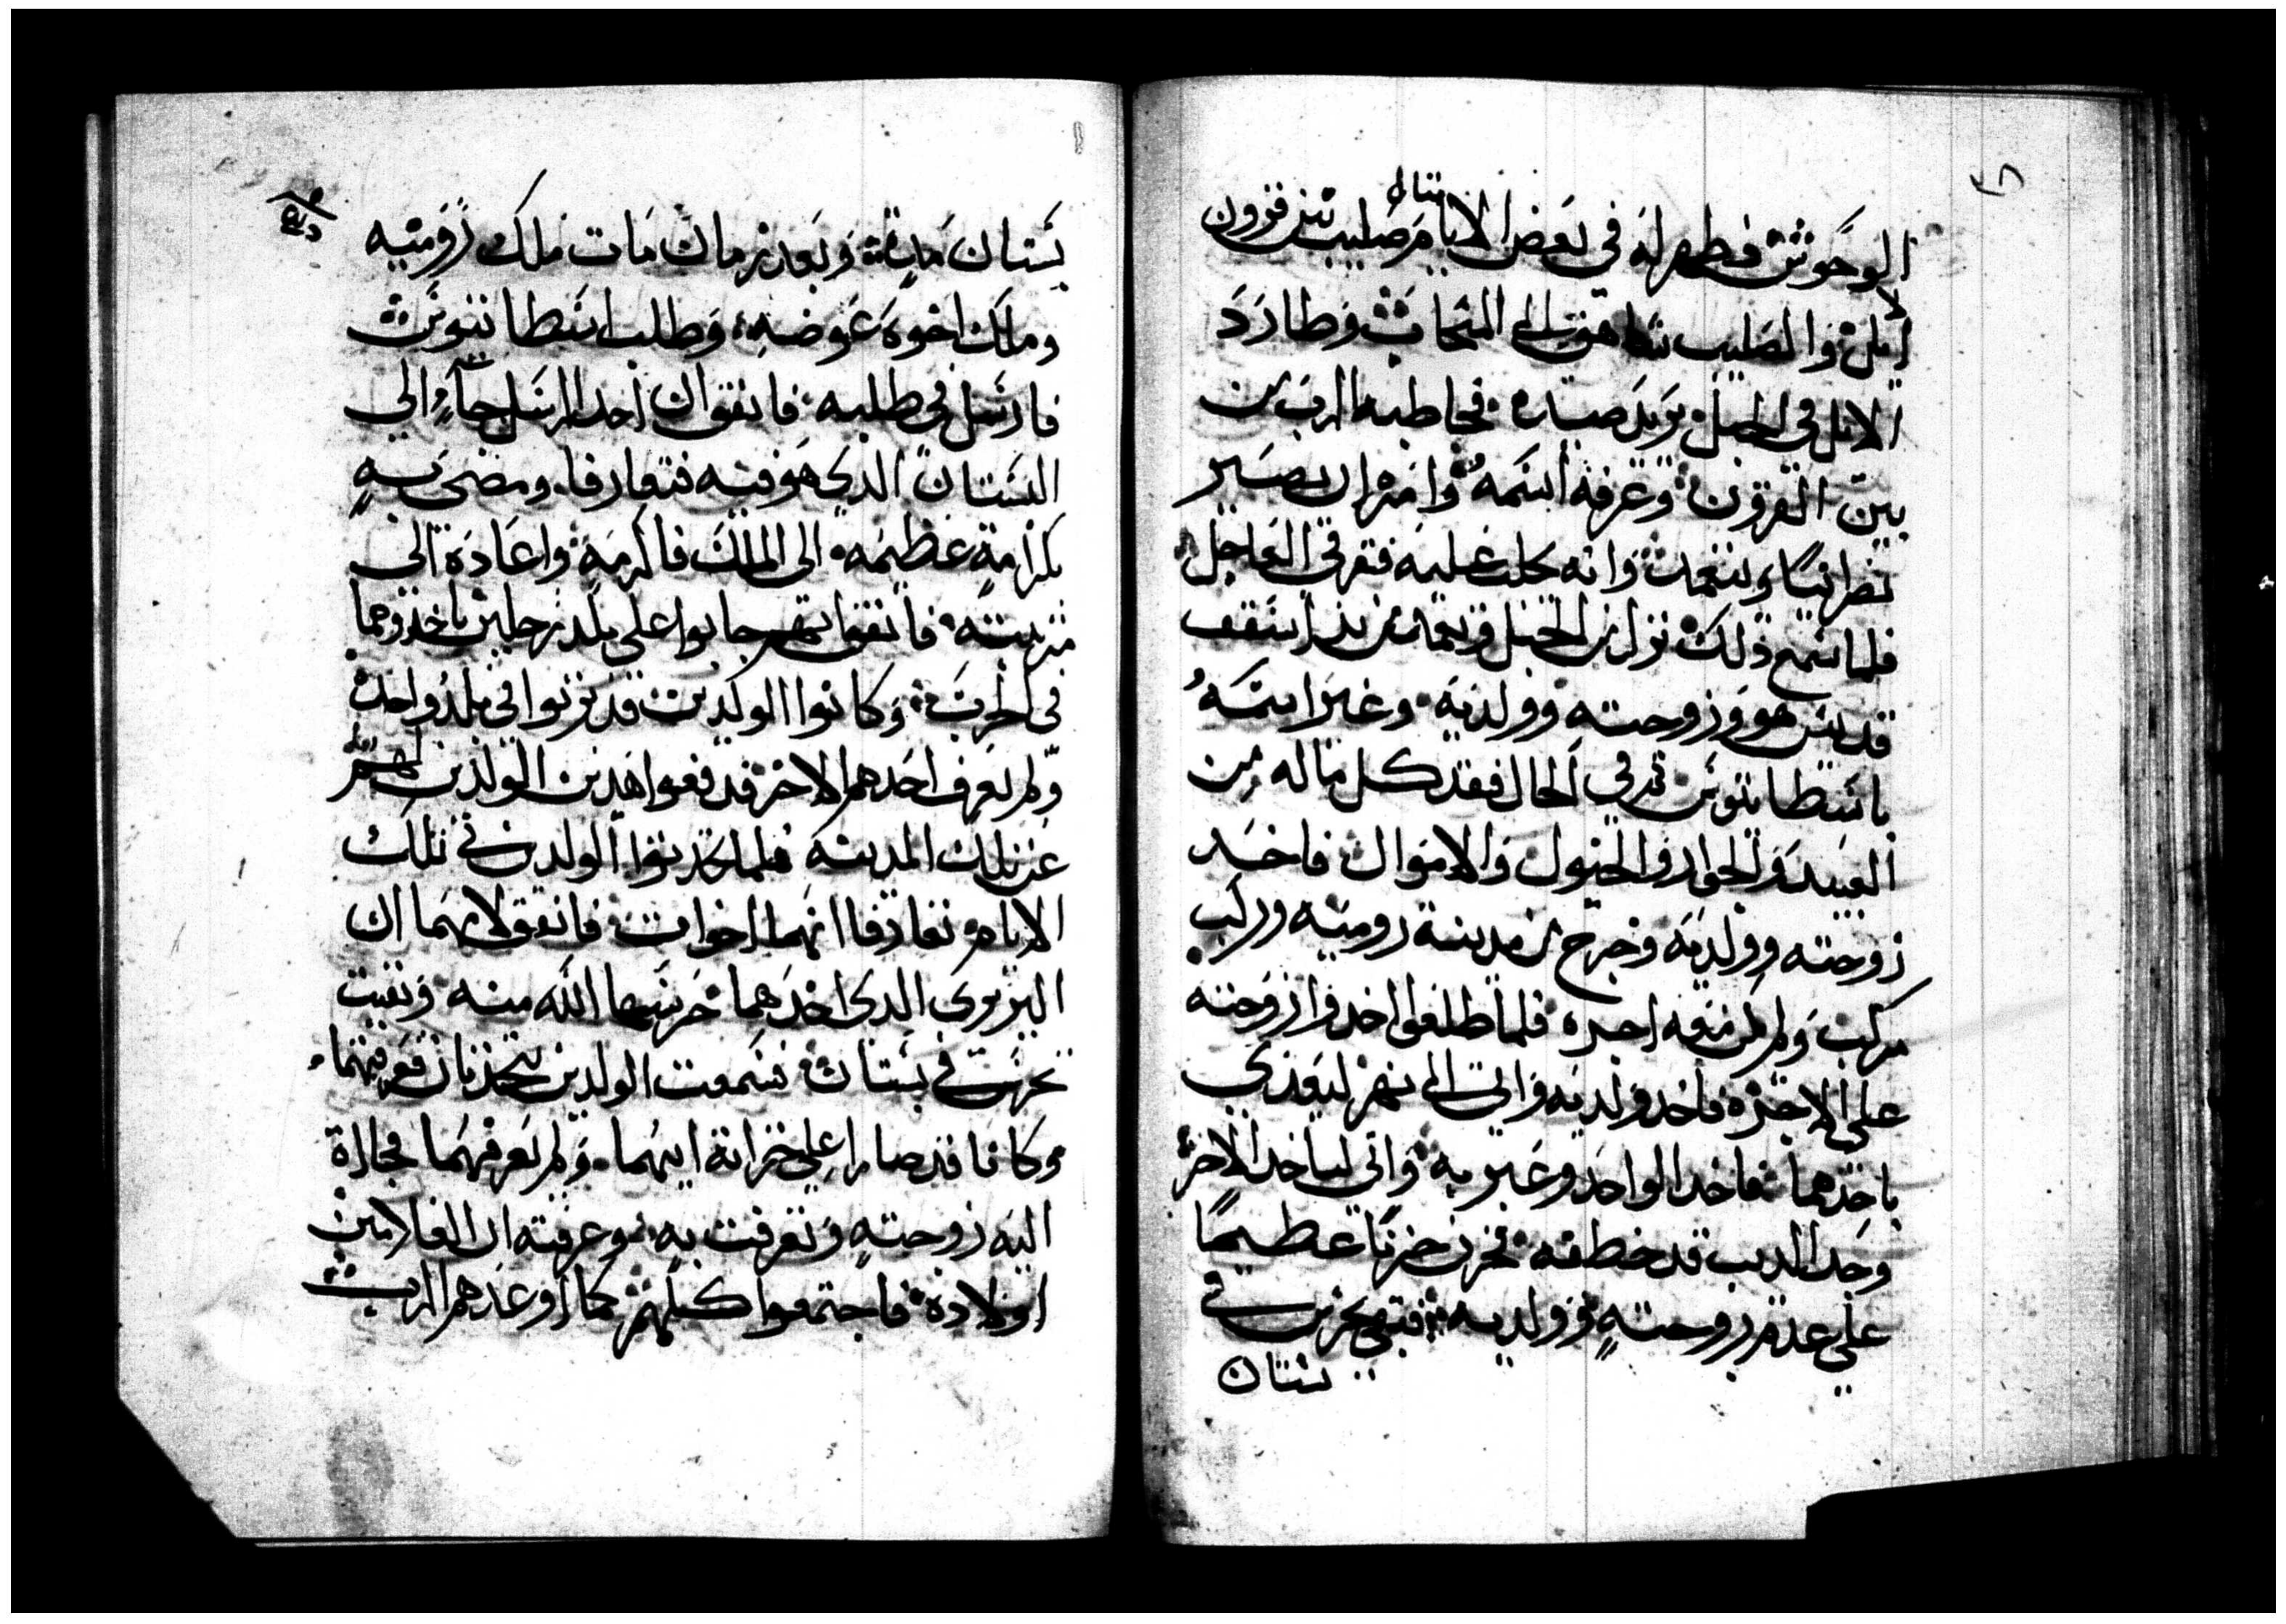 ٣٨
الوحوش فظهر له في بعض الايام صليب بين قرون
ايل والصليب شاهق الى السحاب وطارد
الايل في الجبل يريد صيده فخاطبه الرب من
بين القرون وعرفه اسمه وامره ان يصير
نصرانيا ويتعمد وانه يحل عليه فقر في العاجل
فلما سمع ذلك نزل من الجبل وتعمد من يد اسقف
قديس هو وزوجته وولديه وغير اسمه
باسطاتيوس ثم في الحال فقد كل ماله من
العبيد والجوار والخيول والاموال فاخد
زوجته وولديه وخرج من مدينة رومية وركب
مركب ولم يكن معه اجره فلما طلعوا اخدوا زوجته
على الاجره فاخد ولديه واتى الى نهر ليعدي
باحدهما فاخد الواحد وعبر به واتى لياخد الاخر
وجد الديب قد خطفه فحزن حزنا عظيما
على عدم زوجته وولديه فبقي يحرس في
بستان
بستان مدة وبعد زمان مات ملك رومية
وملك اخوه عوضه وطلب اسطاتيوس
فارسل في طلبه فاتفق ان احد الرسل جاء الى
البستان الدي هو فيه فتعارفا ومضى به
بكرامة عظيمه الى الملك فاكرمه واعاده الى
مرتبته فاتفق انهم جابوا على بلد رجلين ياخدوهما
في الحرب وكانوا الولدين قد تربوا في بلد واحد
ولم يعرف احدهم الاخر فدفعوا هدين الولدين لهم
عن تلك المدينه فلما تحدتوا الولدين في تلك
الايام تعارفا انهما اخوات فاتفق لامهما ان
البربري الدي اخدهما حرسها الله منه وبقيت
تحرس في بستان فسمعت الولدين يتحدتان فعرفتهما
وكانا قد صارا على خزانة ابيهما ولم يعرفهما فجازة
اليه زوجته وتعرفت به وعرفته ان الغلامين
اولاده فاجتمعوا كلهم كما اوعدهم الرب